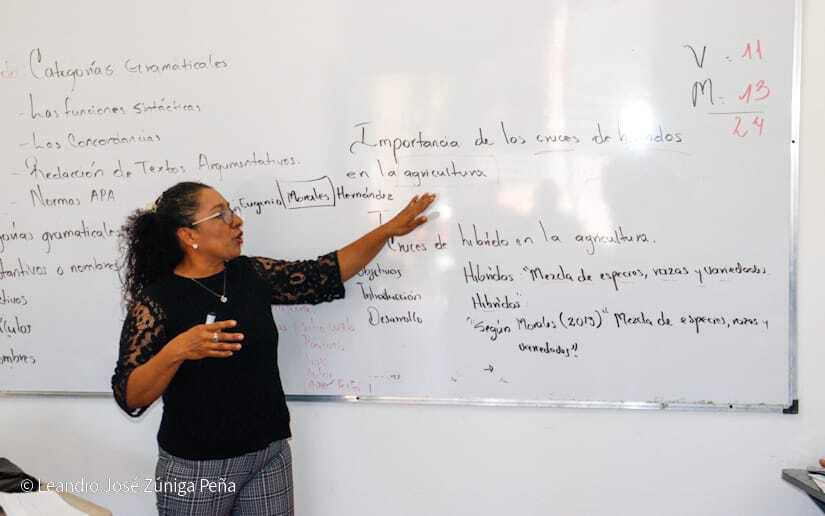 Categorías Gramaticales
- Las funciones sintácticas
- Las Concordancias
- Redacción de Textos Argumentativos.
- Normas APA
gramaticales
o nombres
V = 11
M = 13
24
Importancia de los cruces de híbridos
en la agricultura
Eugenio Morales Hernández
Cruces de híbrido en la agricultura.
Objetivos
Introducción
Desarrollo
Híbridos: "Mezcla de especies, razas y variedades.
Híbridos:
"Según Morales (2019) "Mezcla de especies, razas y
variedades"
© Leandro José Zúniga Peña